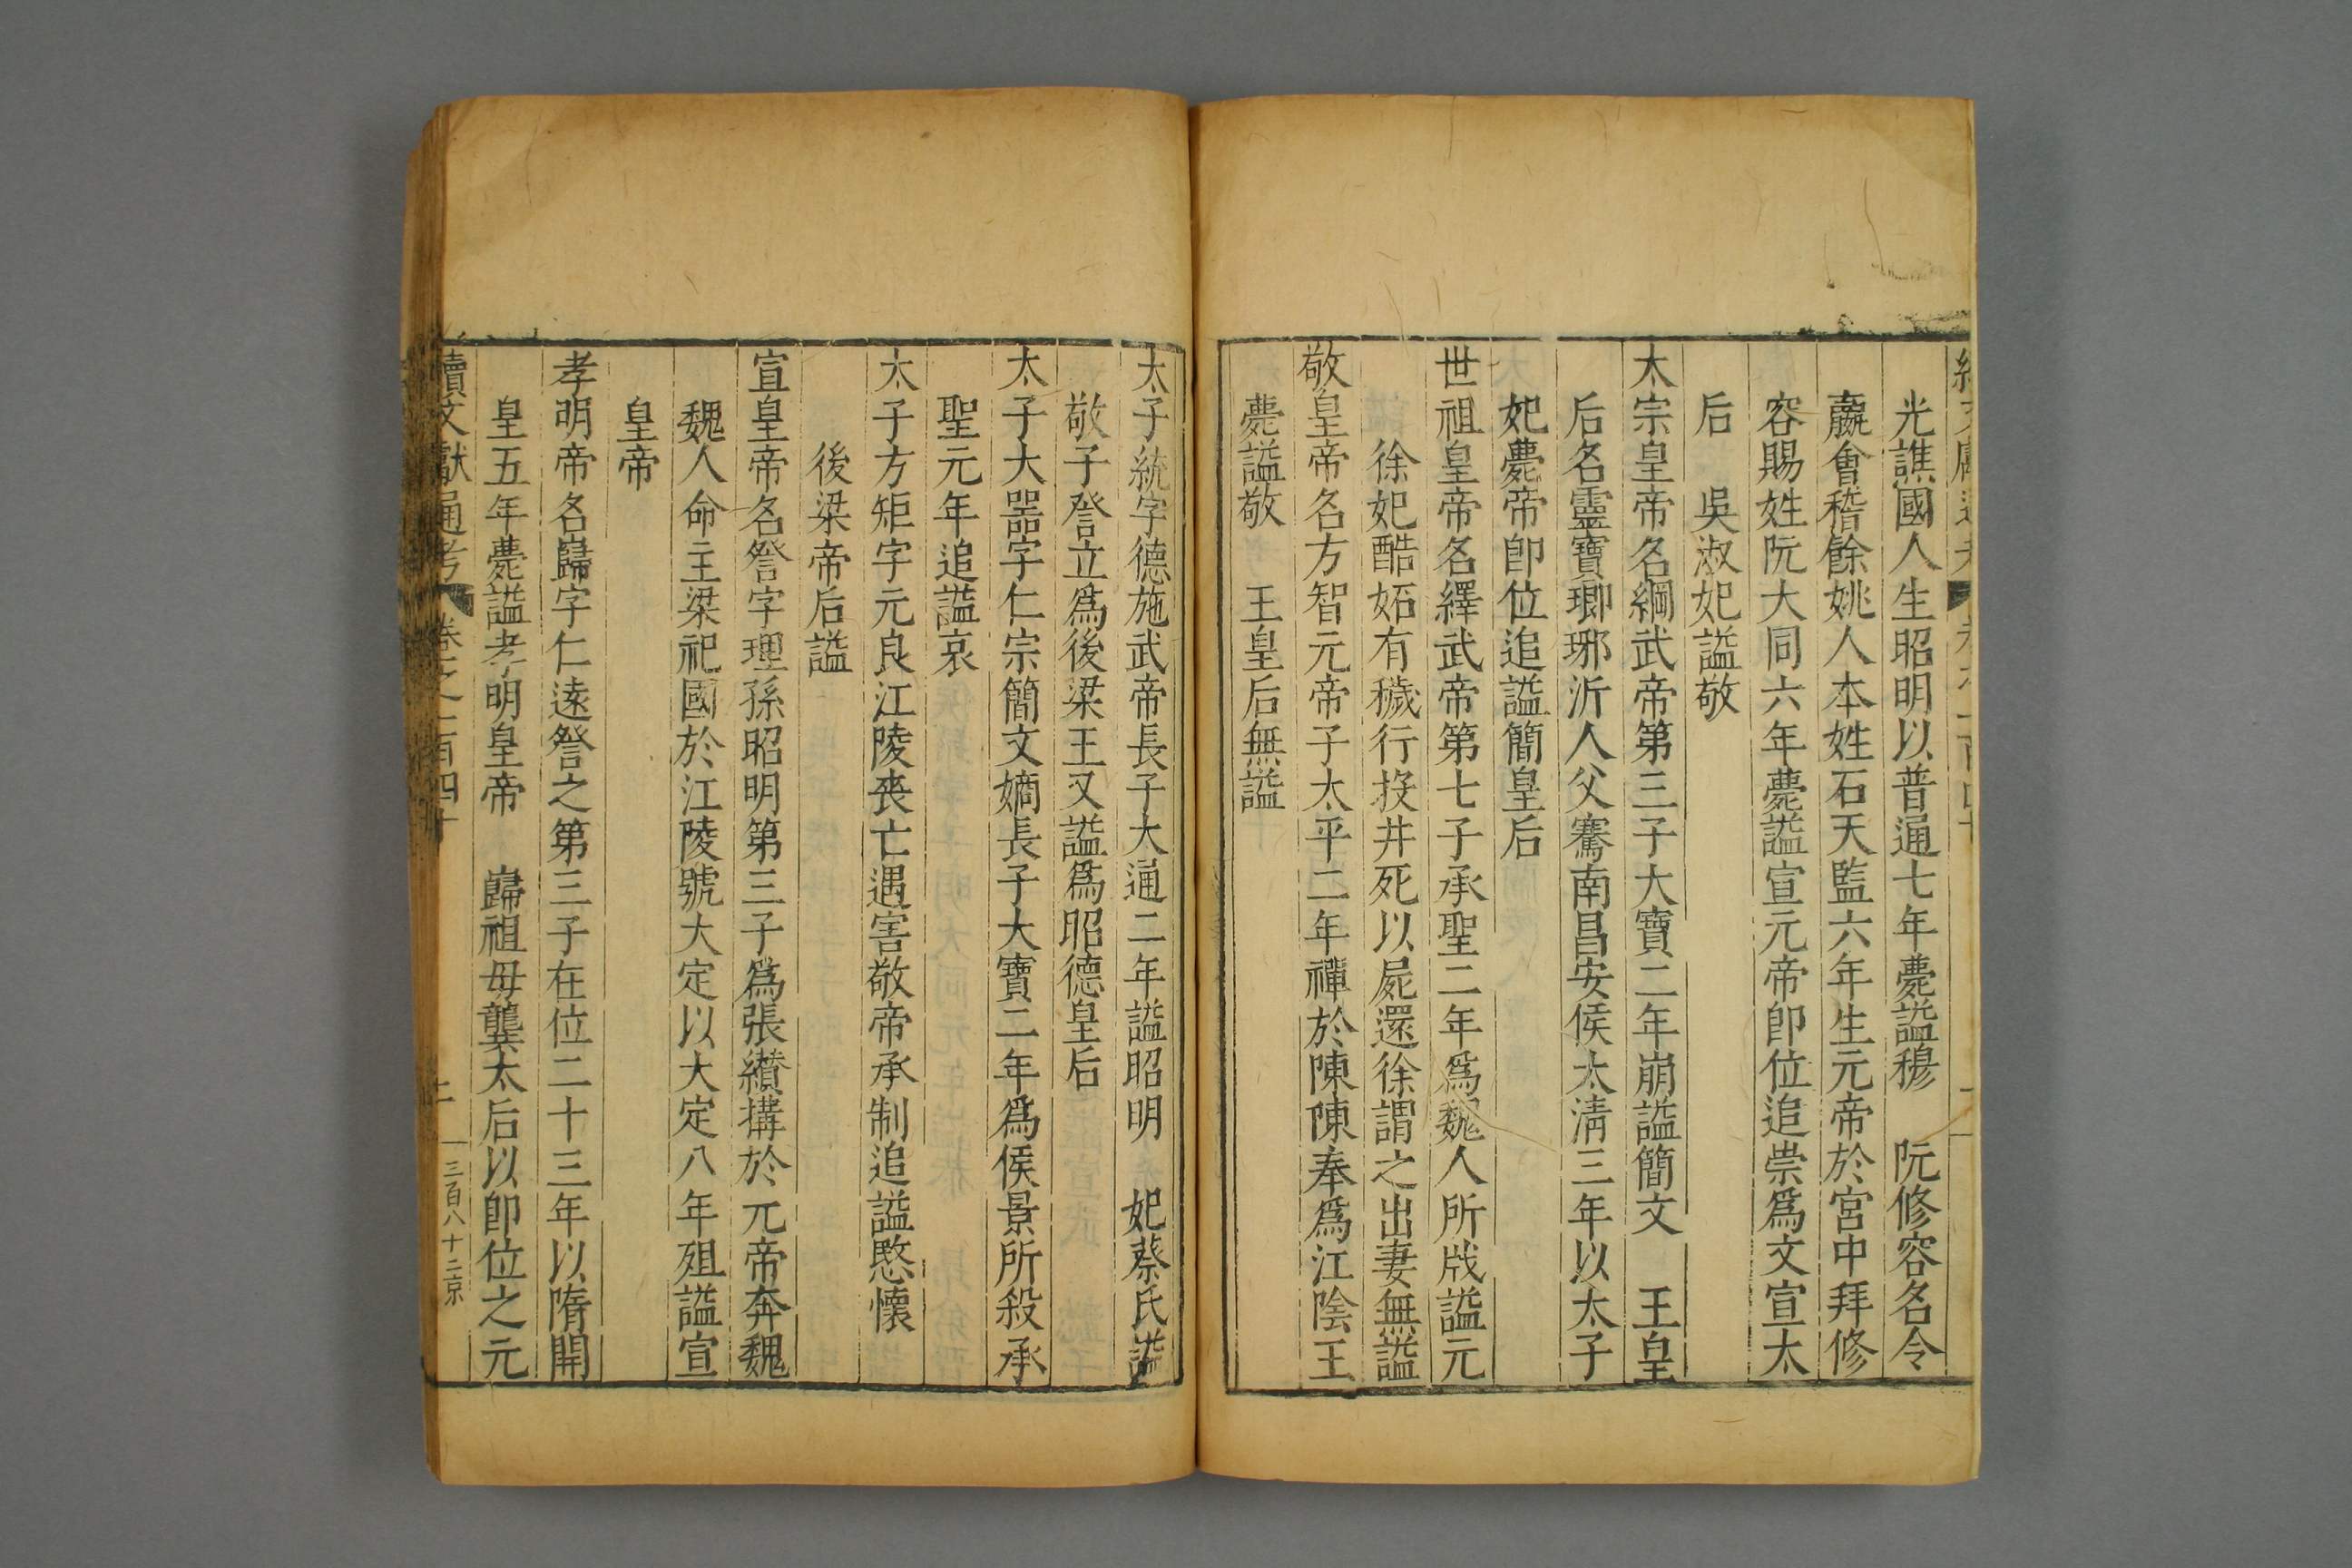 光譙國人生昭明以普通七年薨諡穆　阮修容名令
嬴會稽餘姚人本姓石天監六年生元帝於宮中拜修
容賜姓阮大同六年薨諡宣元帝卽位追崇爲文宣太
后　吳淑妃諡敬
太宗皇帝名綱武帝第三子大寶二年崩諡簡文　王皇
后名靈寶瑯琊沂人父騫南昌安侯太淸三年以太子
妃薨帝卽位追諡簡皇后
世祖皇帝名繹武帝第七子承聖二年爲魏人所戕諡元
徐妃酷妬有穢行投井死以屍還徐謂之出妻無諡
敬皇帝名方智元帝子太平二年禪於陳陳奉爲江陰王
薨諡敬　王皇后無諡
太子統字德施武帝長子大通二年諡昭明　妃蔡氏諡
敬子詧立爲後梁王又諡爲昭德皇后
太子大噐字仁宗簡文嫡長子大寶二年爲侯景所殺承
聖元年追諡哀
太子方矩字元良江陵喪亡遇害敬帝承制追諡愍懷
後梁帝后諡
宣皇帝名詧字理孫昭明第三子爲張纘搆於元帝奔魏
魏人命主梁祀國於江陵號大定以大定八年殂諡宣
皇帝
孝明帝名巋字仁遠詧之第三子在位二十三年以隋開
皇五年薨諡孝明皇帝　巋祖母龔太后以卽位之元
續文獻通考　卷之一百四十　二　三百八十二京